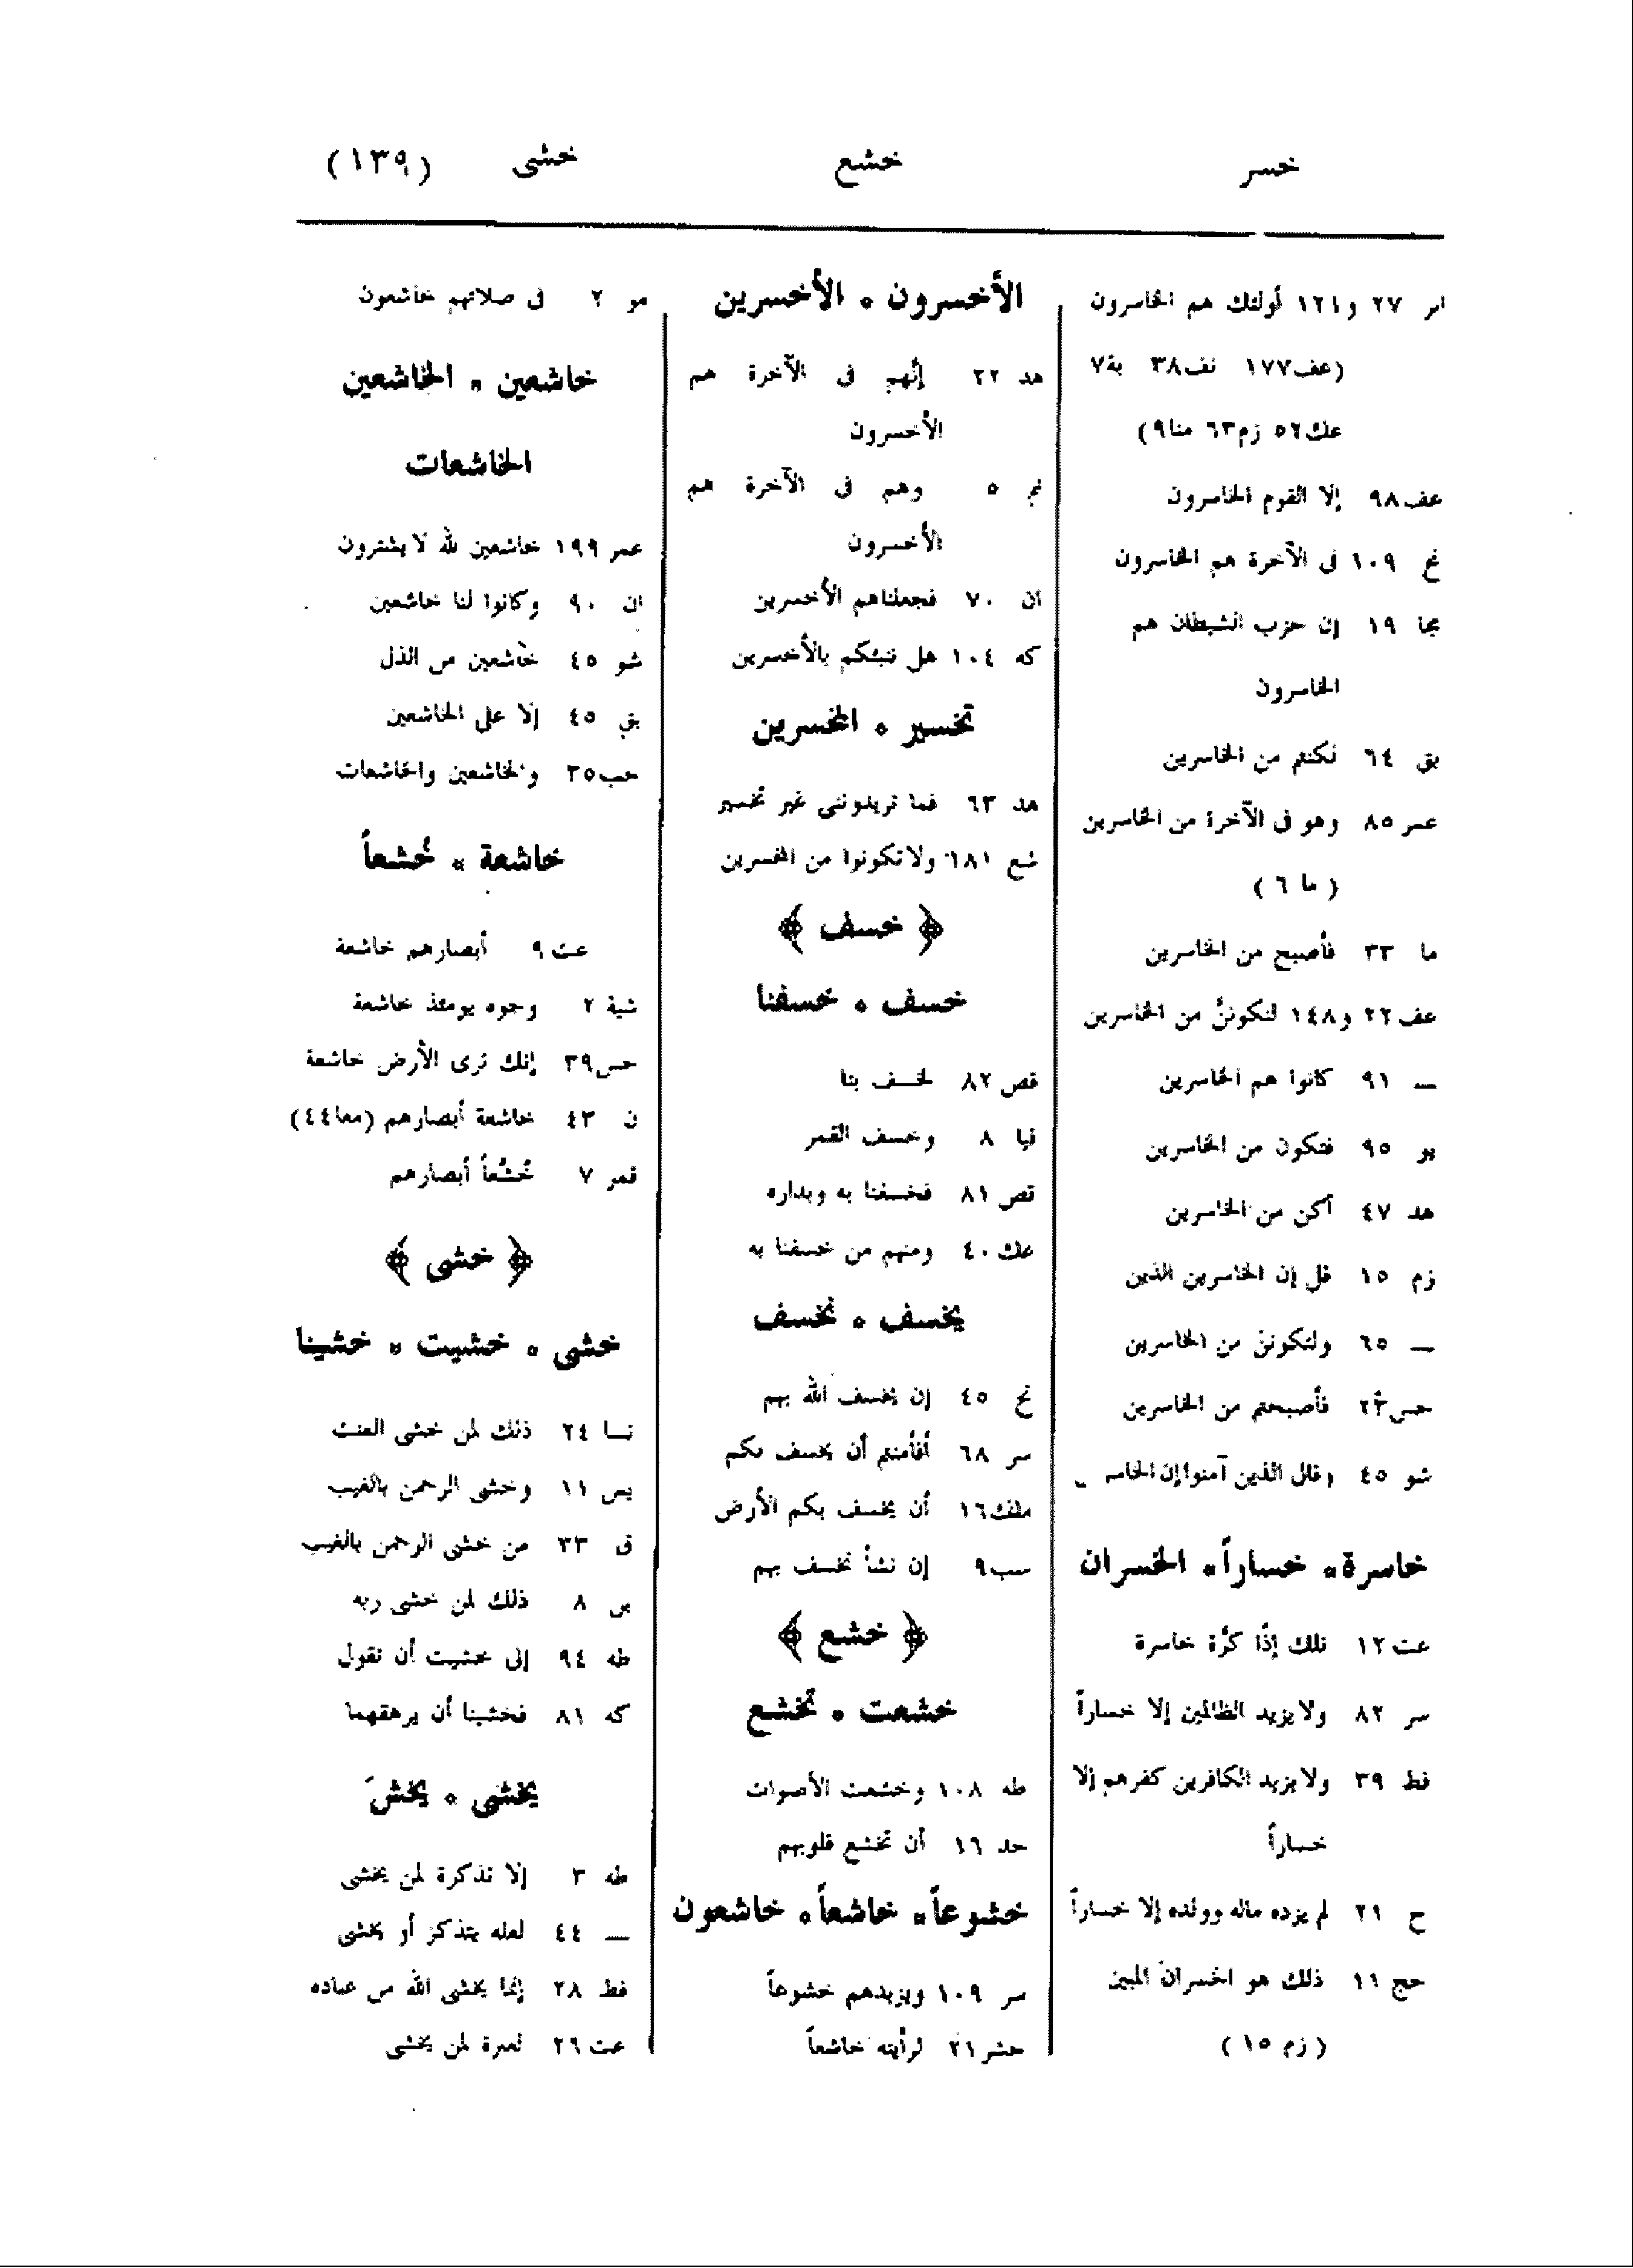 خسر خشع خشى (١٣٩)
٢٧ و١٢١ أولئك هم الخاسرون
(عف١٧٧ نف٣٨ بة٧
عك٥٢ زم٦٣ منا٩)
عف٩٨ إلا القوم الخاسرون
نح ١٠٩ فى الآخرة هم الخاسرون
مجا ١٩ إن حزب الشيطان هم
الخاسرون
بق ٦٤ لكنتم من الخاسرين
عمر ٨٥ وهو فى الآخرة من الخاسرين
( ما ٦ )
ما ٣٣ فأصبح من الخاسرين
عف٢٢ و١٤٨ لنكوننَّ من الخاسرين
— ٩١ كانوا هم الخاسرين
يو ٩٥ فتكون من الخاسرين
هد ٤٧ أكن من الخاسرين
زم ١٥ قل إن الخاسرين الذين
— ٦٥ ولتكونن من الخاسرين
حس٢٣ فأصبحتم من الخاسرين
شو ٤٥ وقال الذين آمنوا إن
خاسرة ٥ خساراً ٥ الخسران
عت ١٢ تلك إذًا كرَّة خاسرة
سر ٨٢ ولا يزيد الظالمين إلا خساراً
فط ٣٩ ولا يزيد الكافرين كفرهم إلا
خساراً
ح ٢١ لم يزده ماله وولده إلا خساراً
حج ١١ ذلك هو الخسران المبين
( زم ١٥ )
الأخسرون ٥ الأخسرين
هد ٢٢ إنَّهم فى الآخرة هم
الأخسرون
نم ٥ وهم فى الآخرة هم
الأخسرون
ان ٧٠ فجعلناهم الأخسرين
كه ١٠٤ هل ننبئكم بالأخسرين
تخسير ٥ المخسرين
هد ٦٣ فما تزيدوننى غير تخسير
شع ١٨١ ولا تكونوا من المخسرين
﴿ خسف ﴾
خسف ٥ خسفنا
قص ٨٢ لخسف بنا
قيا ٨ وخسف القمر
قص ٨١ فخسفنا به وبداره
عك ٤٠ ومنهم من خسفنا به
يخسف ٥ نخسف
نح ٤٥ إن يخسف الله بهم
سر ٦٨ أفأمنتم أن يخسف بكم
ملك١٦ أن يخسف بكم الأرض
سب٩ إن نشأ نخسف بهم
﴿ خشع ﴾
خشعت ٥ تخشع
طه ١٠٨ وخشعت الأصوات
حد ١٦ أن تخشع قلوبهم
خشوعاً ٥ خاشعاً ٥ خاشعون
سر ١٠٩ ويزيدهم خشوعاً
حشر٢١ لرأيته خاشعاً
مو ٢ فى صلاتهم خاشعون
خاشعين ٥ الخاشعين
الخاشعات
عمر ١٩٩ خاشعين لله لا يشترون
ان ٩٠ وكانوا لنا خاشعين
شو ٤٥ خاشعين من الذل
بق ٤٥ إلا على الخاشعين
حب٣٥ والخاشعين والخاشعات
خاشعة ٥ خُشعاً
عت ٩ أبصارهم خاشعة
شية ٢ وجوه يومئذ خاشعة
حس٣٩ إنك ترى الأرض خاشعة
ن ٤٣ خاشعة أبصارهم (معا٤٤)
قمر ٧ خُشَّعاً أبصارهم
﴿ خشى ﴾
خشى ٥ خشيت ٥ خشينا
نسا ٢٤ ذلك لمن خشى العنت
يس ١١ وخشى الرحمن بالغيب
ق ٣٣ من خشى الرحمن بالغيب
٨ ذلك لمن خشى ربه
طه ٩٤ إنى خشيت أن تقول
كه ٨١ فخشينا أن يرهقهما
يخشى ٥ يخشَ
طه ٣ إلا تذكرة لمن يخشى
— ٤٤ لعله يتذكر أو يخشى
فط ٢٨ إنما يخشى الله من عباده
عت ٢٦ لعبرة لمن يخشى